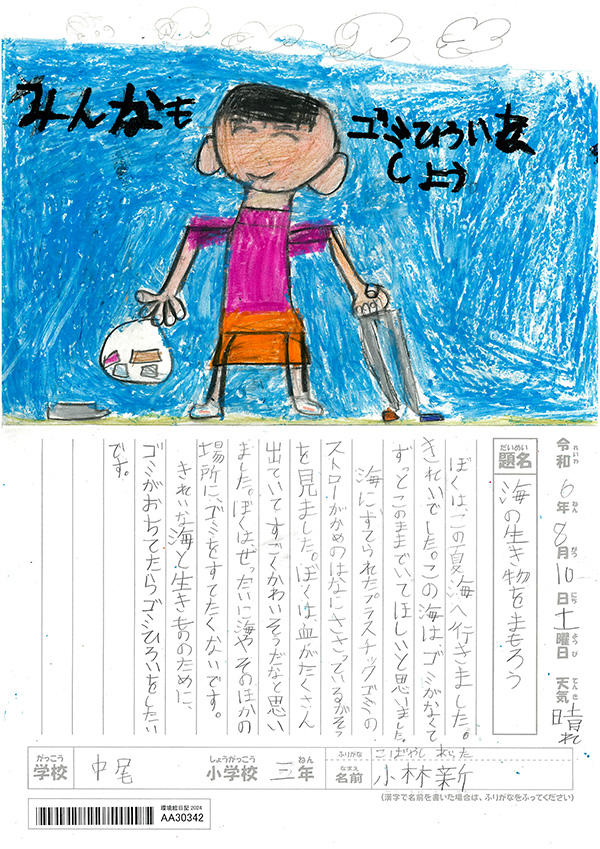 みんなも
ゴミひろいま
しょう
令和6年8月10日土曜日 天気晴れ
れいわ ねん がつ にち ようび てんき
だいめい
題名
海の生き物をまもろう
ぼくは、この夏海へ行きました。
きれいでした。この海は、ゴミがなくて
ずっとこのままでいてほしいと思いました。
海にすてられたプラスチックゴミの
ストローがかめのはなにささっているがぞう
を見ました。ぼくは、血がたくさん
出ていてすごくかわいそうだなと思い
ました。ぼくはぜったいに海やそのほかの
場所に、ゴミをすてたくないです。
きれいな海と生きもののために、
ゴミがおちてたらゴミひろいをしたい
です。
がっこう しょうがっこう ねん
学校 中尾 小学校 三年
ふりがな こばやし あらた
なまえ
名前 小林新
(漢字で名前を書いた場合は、ふりがなをふってください)
環境絵日記 2024
AA30342